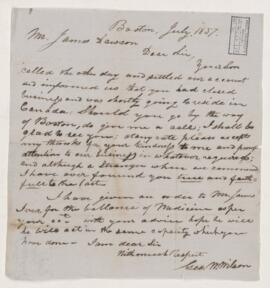 Boston, July, 1857.
Mr. James Dawson
Dear Sir,
Your Son
called the other day and settled our account
and informed us that you had closed
business and was shortly going to reside in
Canada. Should you go by the way
of Boston, do give me a call; I shall be
glad to see you; at any rate please accept
my thanks for your kindness to me and prompt
attention to our business in whatever required;
and although a stranger when we commenced
I have ever found you true and faith-
full to the last.
I have given an order to Mr. James
for the balance of Medicine as per
your with your advice hope he will
will act in the same capacity which you
have done - I am dear Sir
With much Respect
Geo. W. Wilson